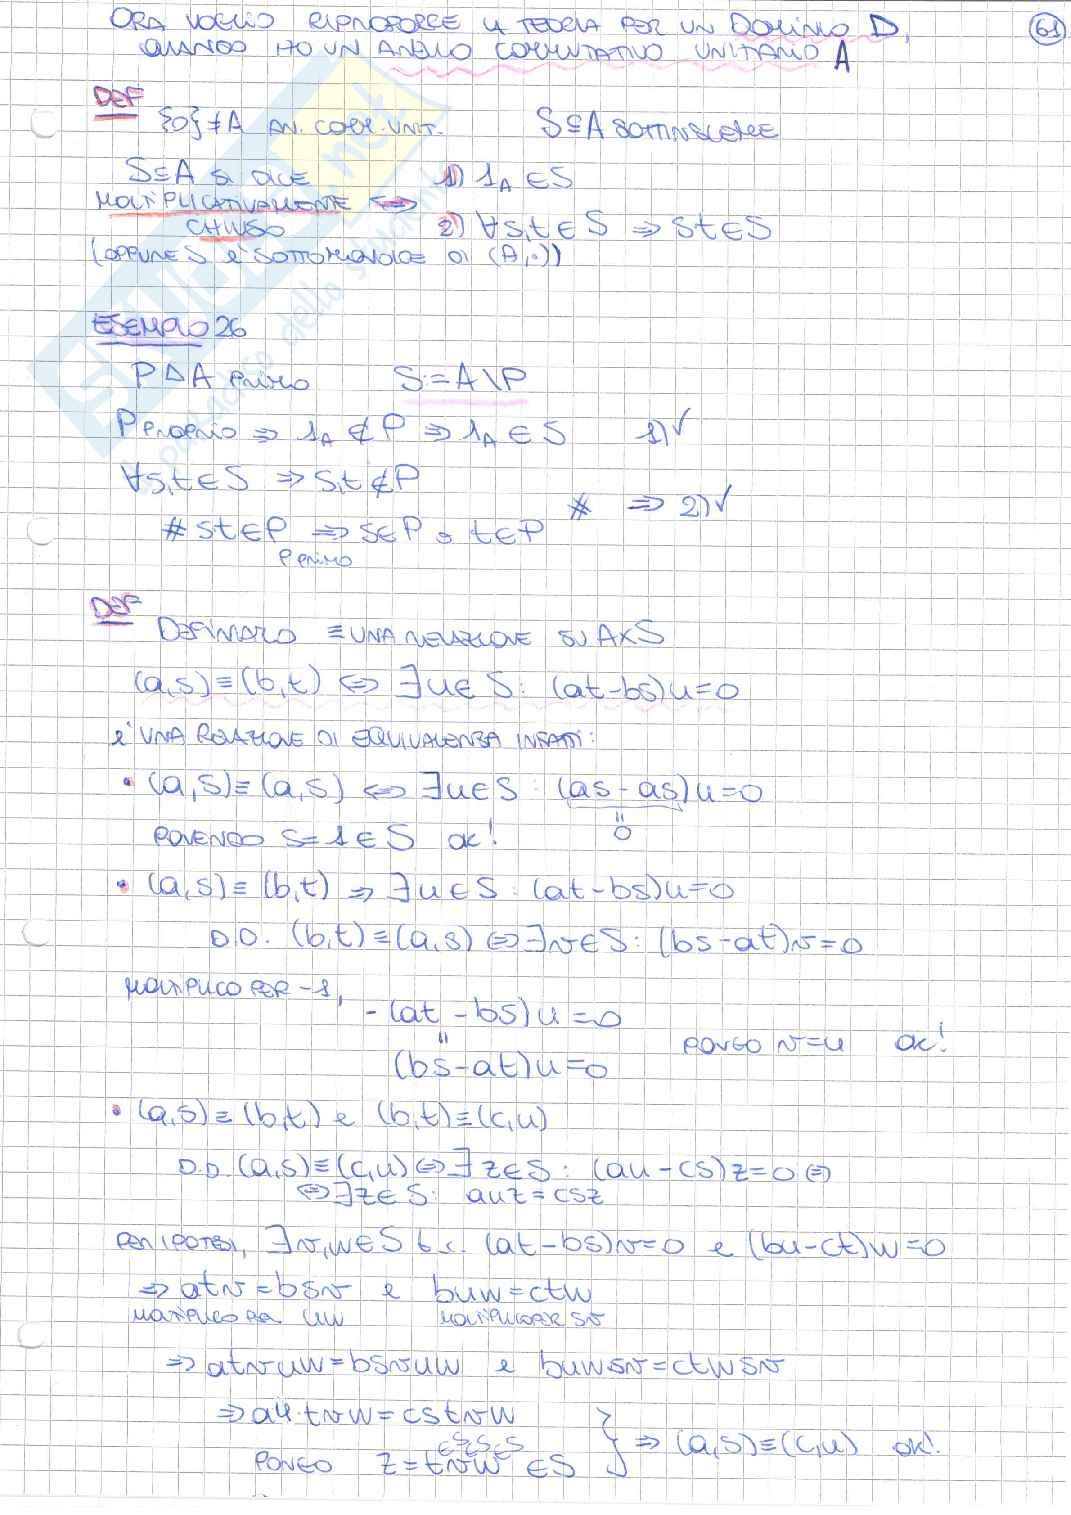 ORA VOGLIO RIPROPORRE LA TEORIA PER UN DOMINIO D,
QUANDO HO UN ANELLO COMMUTATIVO UNITARIO A
61
DEF
{0}≠A AN. COMM. UNIT. S⊆A SOTTINSIEME
S⊆A SI DICE MOLTIPLICATIVAMENTE CHIUSO ⇔ 1) 1_A ∈ S
2) ∀s,t ∈ S ⇒ st ∈ S
(OPPURE S È SOTTOMONOIDE DI (A,·))
ESEMPIO 26
P⊴A PRIMO S:=A\P
P PROPRIO ⇒ 1_A ∉ P ⇒ 1_A ∈ S 1)✓
∀s,t ∈ S ⇒ s,t ∉ P
# st ∈ P ⇒ s ∈ P o t ∈ P # ⇒ 2)✓
P PRIMO
DEF
DEFINIAMO ≡ UNA RELAZIONE SU A×S
(a,s)≡(b,t) ⇔ ∃u∈S: (at-bs)u=0
È UNA RELAZIONE DI EQUIVALENZA INFATTI:
• (a,s)≡(a,s) ⇔ ∃u∈S: (as-as)u=0
=0
PONENDO S=1∈S OK!
• (a,s)≡(b,t) ⇒ ∃u∈S: (at-bs)u=0
D.D. (b,t)≡(a,s) ⇔ ∃v∈S: (bs-at)v=0
MOLTIPLICO PER -1,
-(at-bs)u=0
=
(bs-at)u=0
PONGO v=u OK!
• (a,s)≡(b,t) e (b,t)≡(c,u)
D.D. (a,s)≡(c,u) ⇔ ∃z∈S: (au-cs)z=0 ⇔
⇔ ∃z∈S: auz=csz
PER IPOTESI, ∃v,w∈S t.c. (at-bs)v=0 e (bu-ct)w=0
⇒ atv=bsv e buw=ctw
MOLTIPLICO PER uw MOLTIPLICO PER sv
⇒ atvuw=bsvuw e buwsv=ctwsv
⇒ au·tvw=cstvw
∈S ∈S ∈S
PONGO z=tvw ∈S } ⇒ (a,s)≡(c,u) OK!